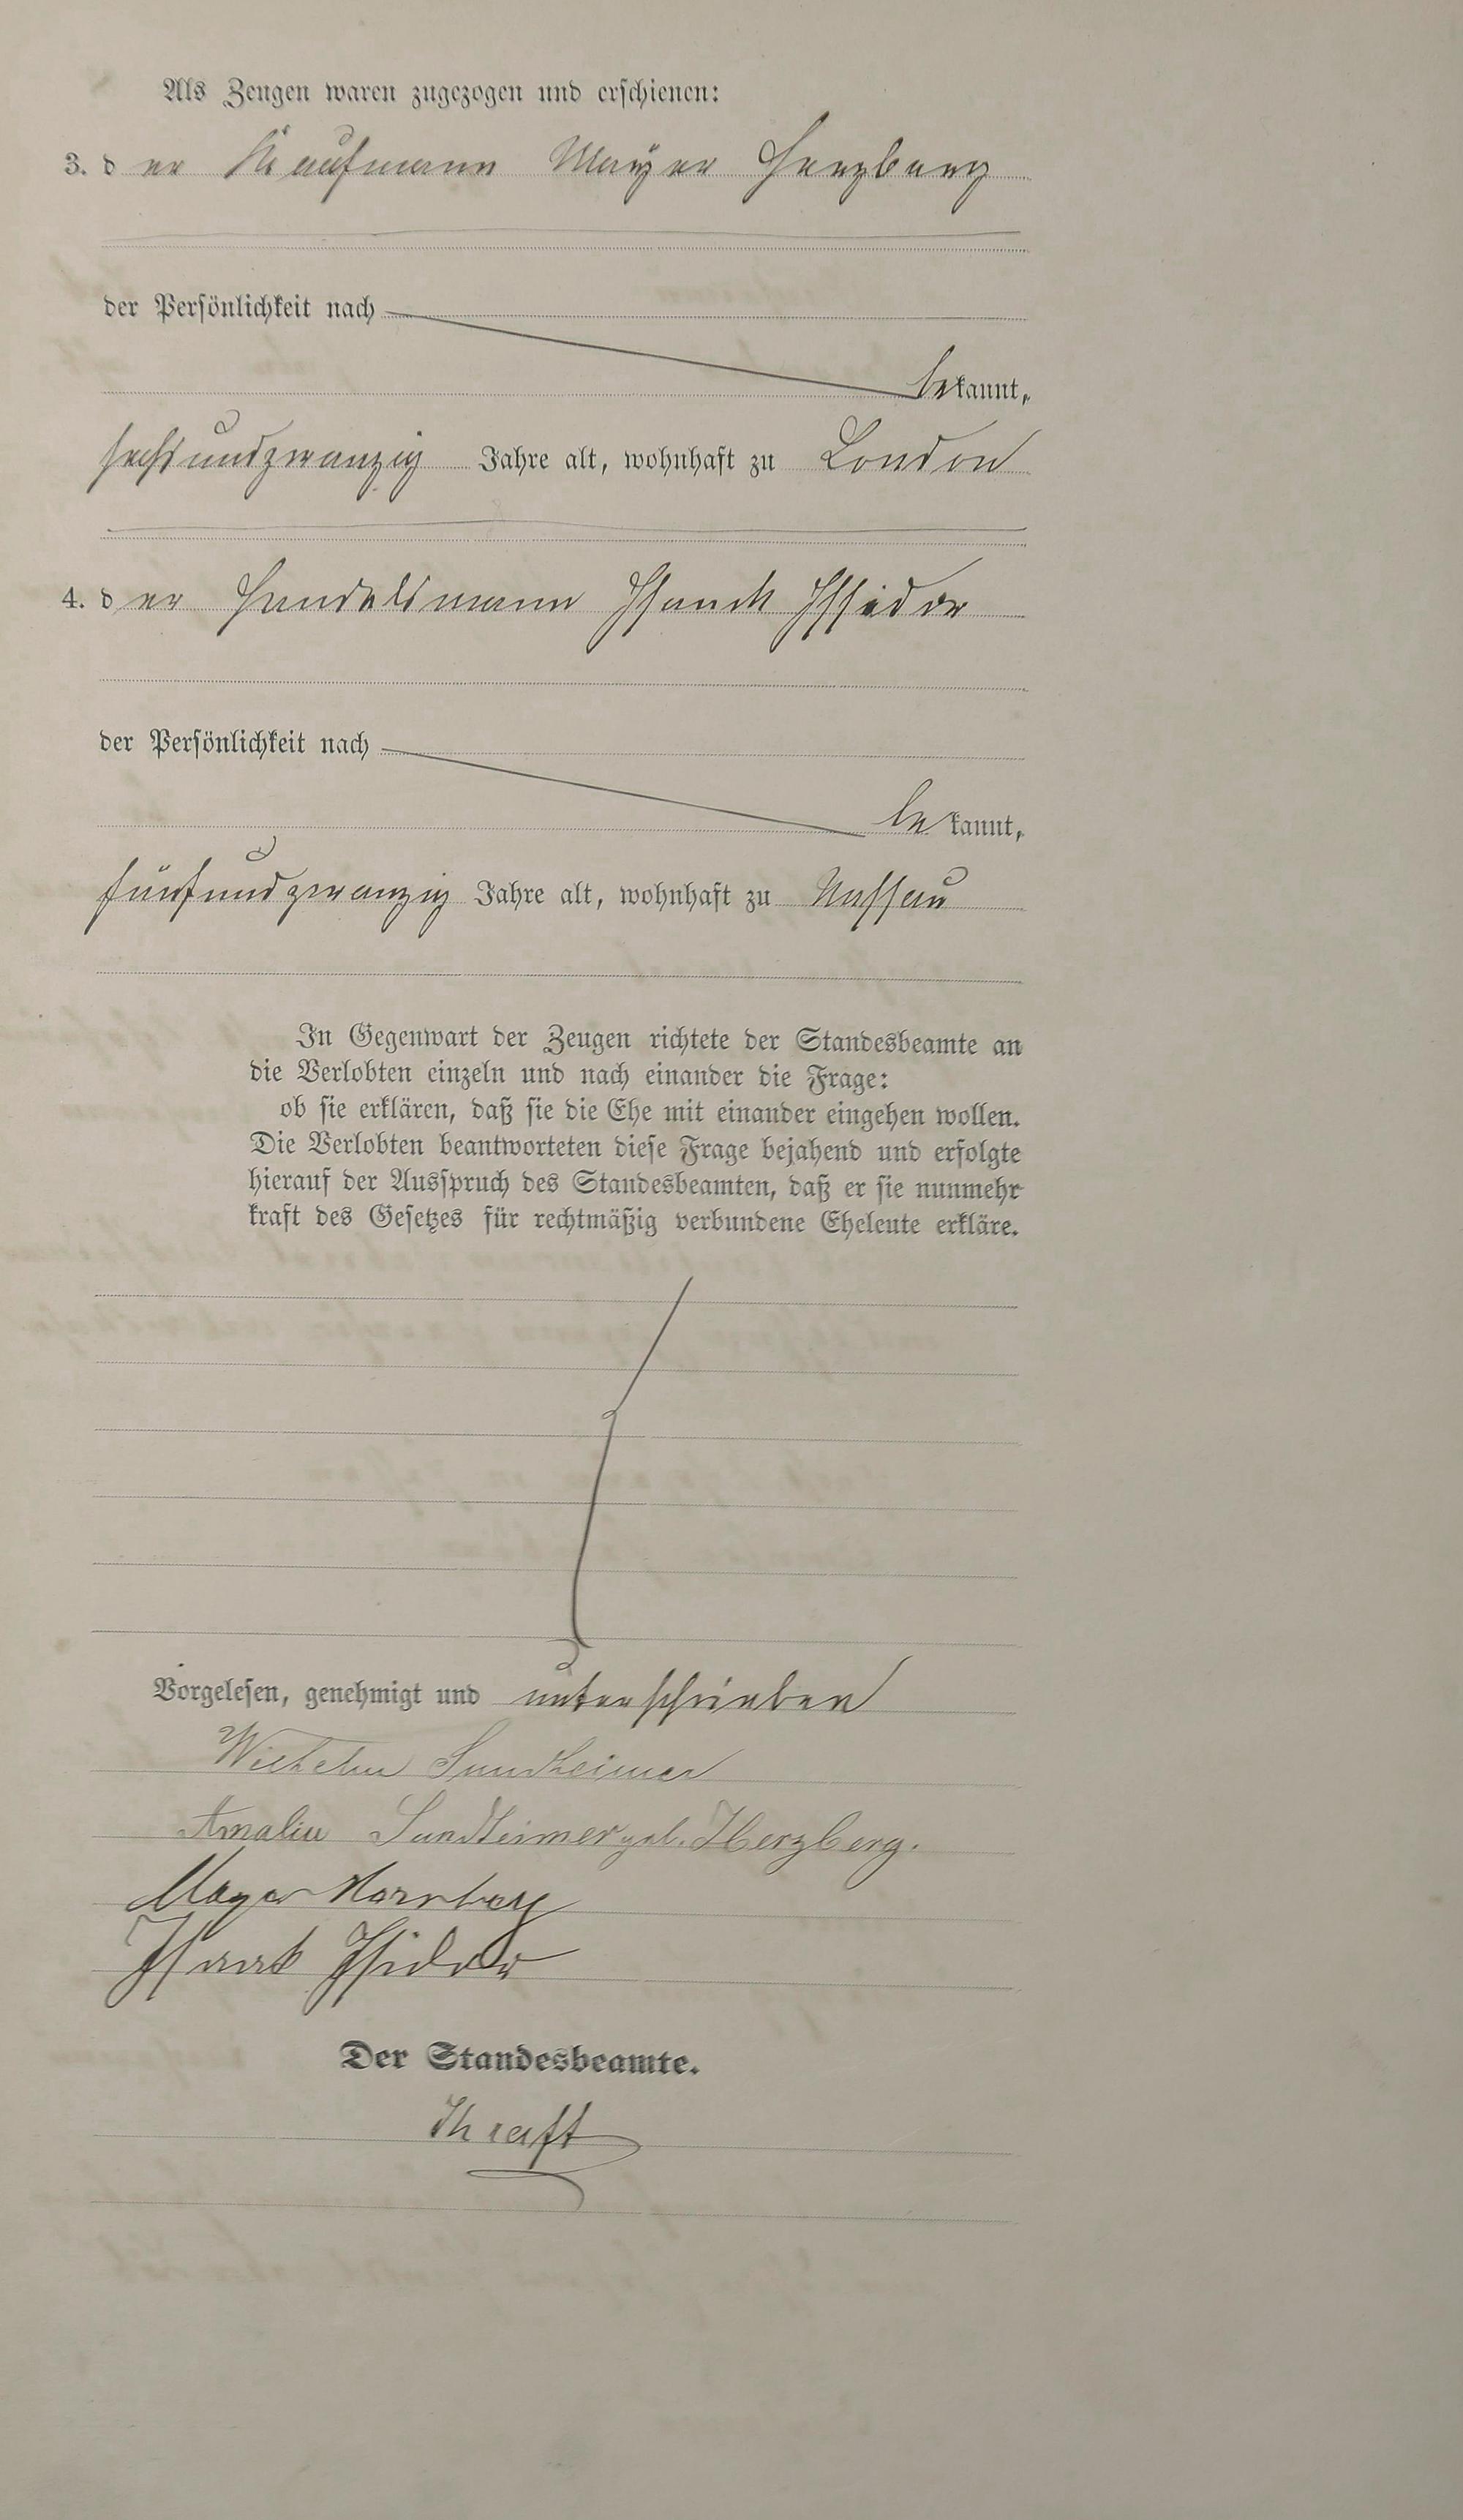 Als Zeugen waren zugezogen und erschienen:
3. der Kaufmann Mayer Herzberg
der Persönlichkeit nach
bekannt,
sechsundzwanzig Jahre alt, wohnhaft zu London
4. der Handelsmann Isaack Issidor
der Persönlichkeit nach
bekannt,
fünfundzwanzig Jahre alt, wohnhaft zu Nassau
In Gegenwart der Zeugen richtete der Standesbeamte an
die Verlobten einzeln und nach einander die Frage:
ob sie erklären, daß sie die Ehe mit einander eingehen wollen.
Die Verlobten beantworteten diese Frage bejahend und erfolgte
hierauf der Ausspruch des Standesbeamten, daß er sie nunmehr
kraft des Gesetzes für rechtmäßig verbundene Eheleute erkläre.
Vorgelesen, genehmigt und unterschrieben
Wilhelm Sundheimer
Amalie Sundheimer geb. Herzberg.
Mayer Herzberg
Isaak Isidor
Der Standesbeamte.